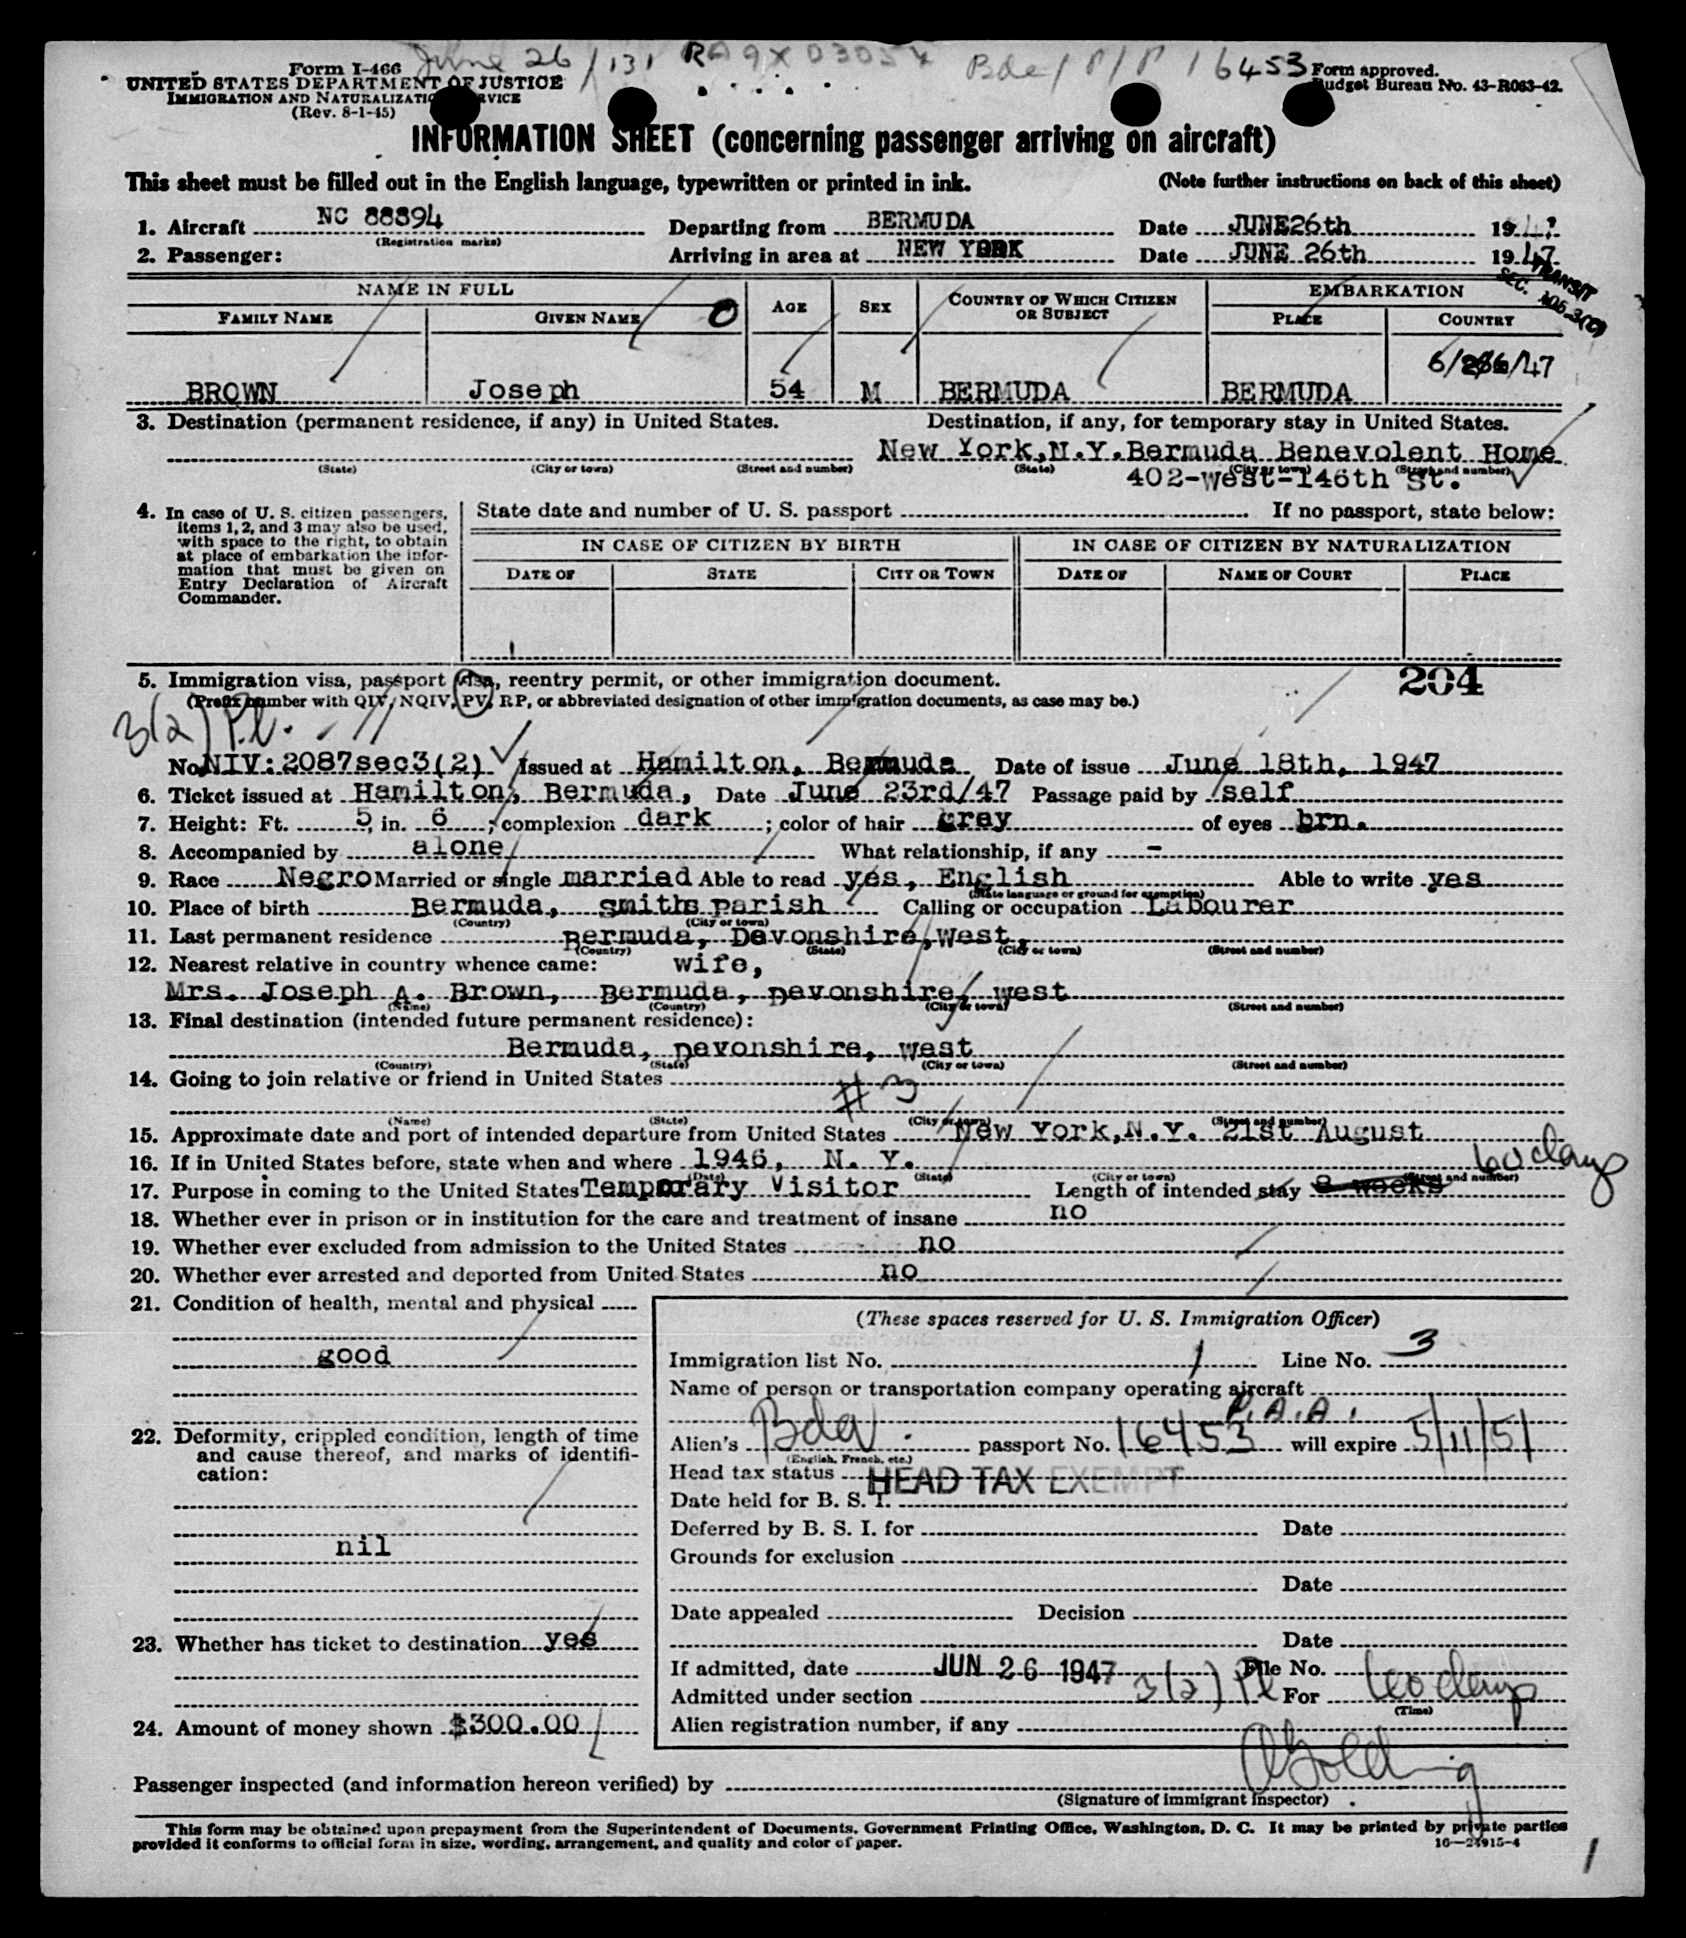 June 26/131 Bde/P/P 16453
Form I-466
UNITED STATES DEPARTMENT OF JUSTICE
IMMIGRATION AND NATURALIZATION SERVICE
(Rev. 8-1-45)
Form approved.
Budget Bureau No. 43-R063-42.
INFORMATION SHEET (concerning passenger arriving on aircraft)
This sheet must be filled out in the English language, typewritten or printed in ink. (Note further instructions on back of this sheet)
1. Aircraft NC 88894 Departing from BERMUDA Date JUNE26th 1947
(Registration marks)
2. Passenger: Arriving in area at NEW YORK Date JUNE 26th 1947
TRANSIT
SEC.
NAME IN FULL AGE SEX COUNTRY OF WHICH CITIZEN OR SUBJECT EMBARKATION
FAMILY NAME GIVEN NAME O PLACE COUNTRY
6/26/47
BROWN Joseph 54 M BERMUDA BERMUDA
3. Destination (permanent residence, if any) in United States. Destination, if any, for temporary stay in United States.
New York,N.Y.Bermuda Benevolent Home
(State) (City or town) (Street and number) (State) (City or town) (Street and number)
402-West-146th St.
4. In case of U. S. citizen passengers, items 1, 2, and 3 may also be used, with space to the right, to obtain at place of embarkation the information that must be given on Entry Declaration of Aircraft Commander.
State date and number of U. S. passport If no passport, state below:
IN CASE OF CITIZEN BY BIRTH IN CASE OF CITIZEN BY NATURALIZATION
DATE OF STATE CITY OR TOWN DATE OF NAME OF COURT PLACE
5. Immigration visa, passport visa, reentry permit, or other immigration document. 204
(Prefix number with QIV, NQIV, PV, RP, or abbreviated designation of other immigration documents, as case may be.)
3(2) Pl.
No. NIV:2087sec3(2) Issued at Hamilton, Bermuda Date of issue June 18th, 1947
6. Ticket issued at Hamilton, Bermuda, Date June 23rd/47 Passage paid by self
7. Height: Ft. 5, in. 6; complexion dark; color of hair grey of eyes brn.
8. Accompanied by alone What relationship, if any -
9. Race Negro Married or single married Able to read yes, English Able to write yes
(State language or ground for exemption)
10. Place of birth Bermuda, smiths parish Calling or occupation Labourer
(Country) (City or town)
11. Last permanent residence Bermuda, Devonshire,West,
(Country) (State) (City or town) (Street and number)
12. Nearest relative in country whence came: wife,
Mrs. Joseph A. Brown, Bermuda, Devonshire, West
(Name) (Country) (City or town) (Street and number)
13. Final destination (intended future permanent residence):
Bermuda, Devonshire, West
(Country) (State) (City or town) (Street and number)
14. Going to join relative or friend in United States
#3
(Name) (State) (City or town) (Street and number)
15. Approximate date and port of intended departure from United States New York,N.Y. 21st August
16. If in United States before, state when and where 1946, N. Y.
(Date) (State) (City or town) (Street and number)
60 days
17. Purpose in coming to the United States Temporary Visitor Length of intended stay 8 weeks
18. Whether ever in prison or in institution for the care and treatment of insane no
19. Whether ever excluded from admission to the United States no
20. Whether ever arrested and deported from United States no
21. Condition of health, mental and physical
good
22. Deformity, crippled condition, length of time and cause thereof, and marks of identification:
nil
23. Whether has ticket to destination yes
24. Amount of money shown $300.00
(These spaces reserved for U. S. Immigration Officer)
Immigration list No. 1 Line No. 3
Name of person or transportation company operating aircraft
P.A.A.
Alien's Bda. passport No. 16453 will expire 5/11/51
(English, French, etc.)
Head tax status HEAD TAX EXEMPT
Date held for B. S. I.
Deferred by B. S. I. for Date
Grounds for exclusion
Date
Date appealed Decision
Date
If admitted, date JUN 26 1947 File No.
Admitted under section 3(2) Pl For 60 days
(Time)
Alien registration number, if any
Passenger inspected (and information hereon verified) by
(Signature of Immigrant Inspector)
This form may be obtained upon prepayment from the Superintendent of Documents, Government Printing Office, Washington, D. C. It may be printed by private parties
provided it conforms to official form in size, wording, arrangement, and quality and color of paper. 16—24915-4
1